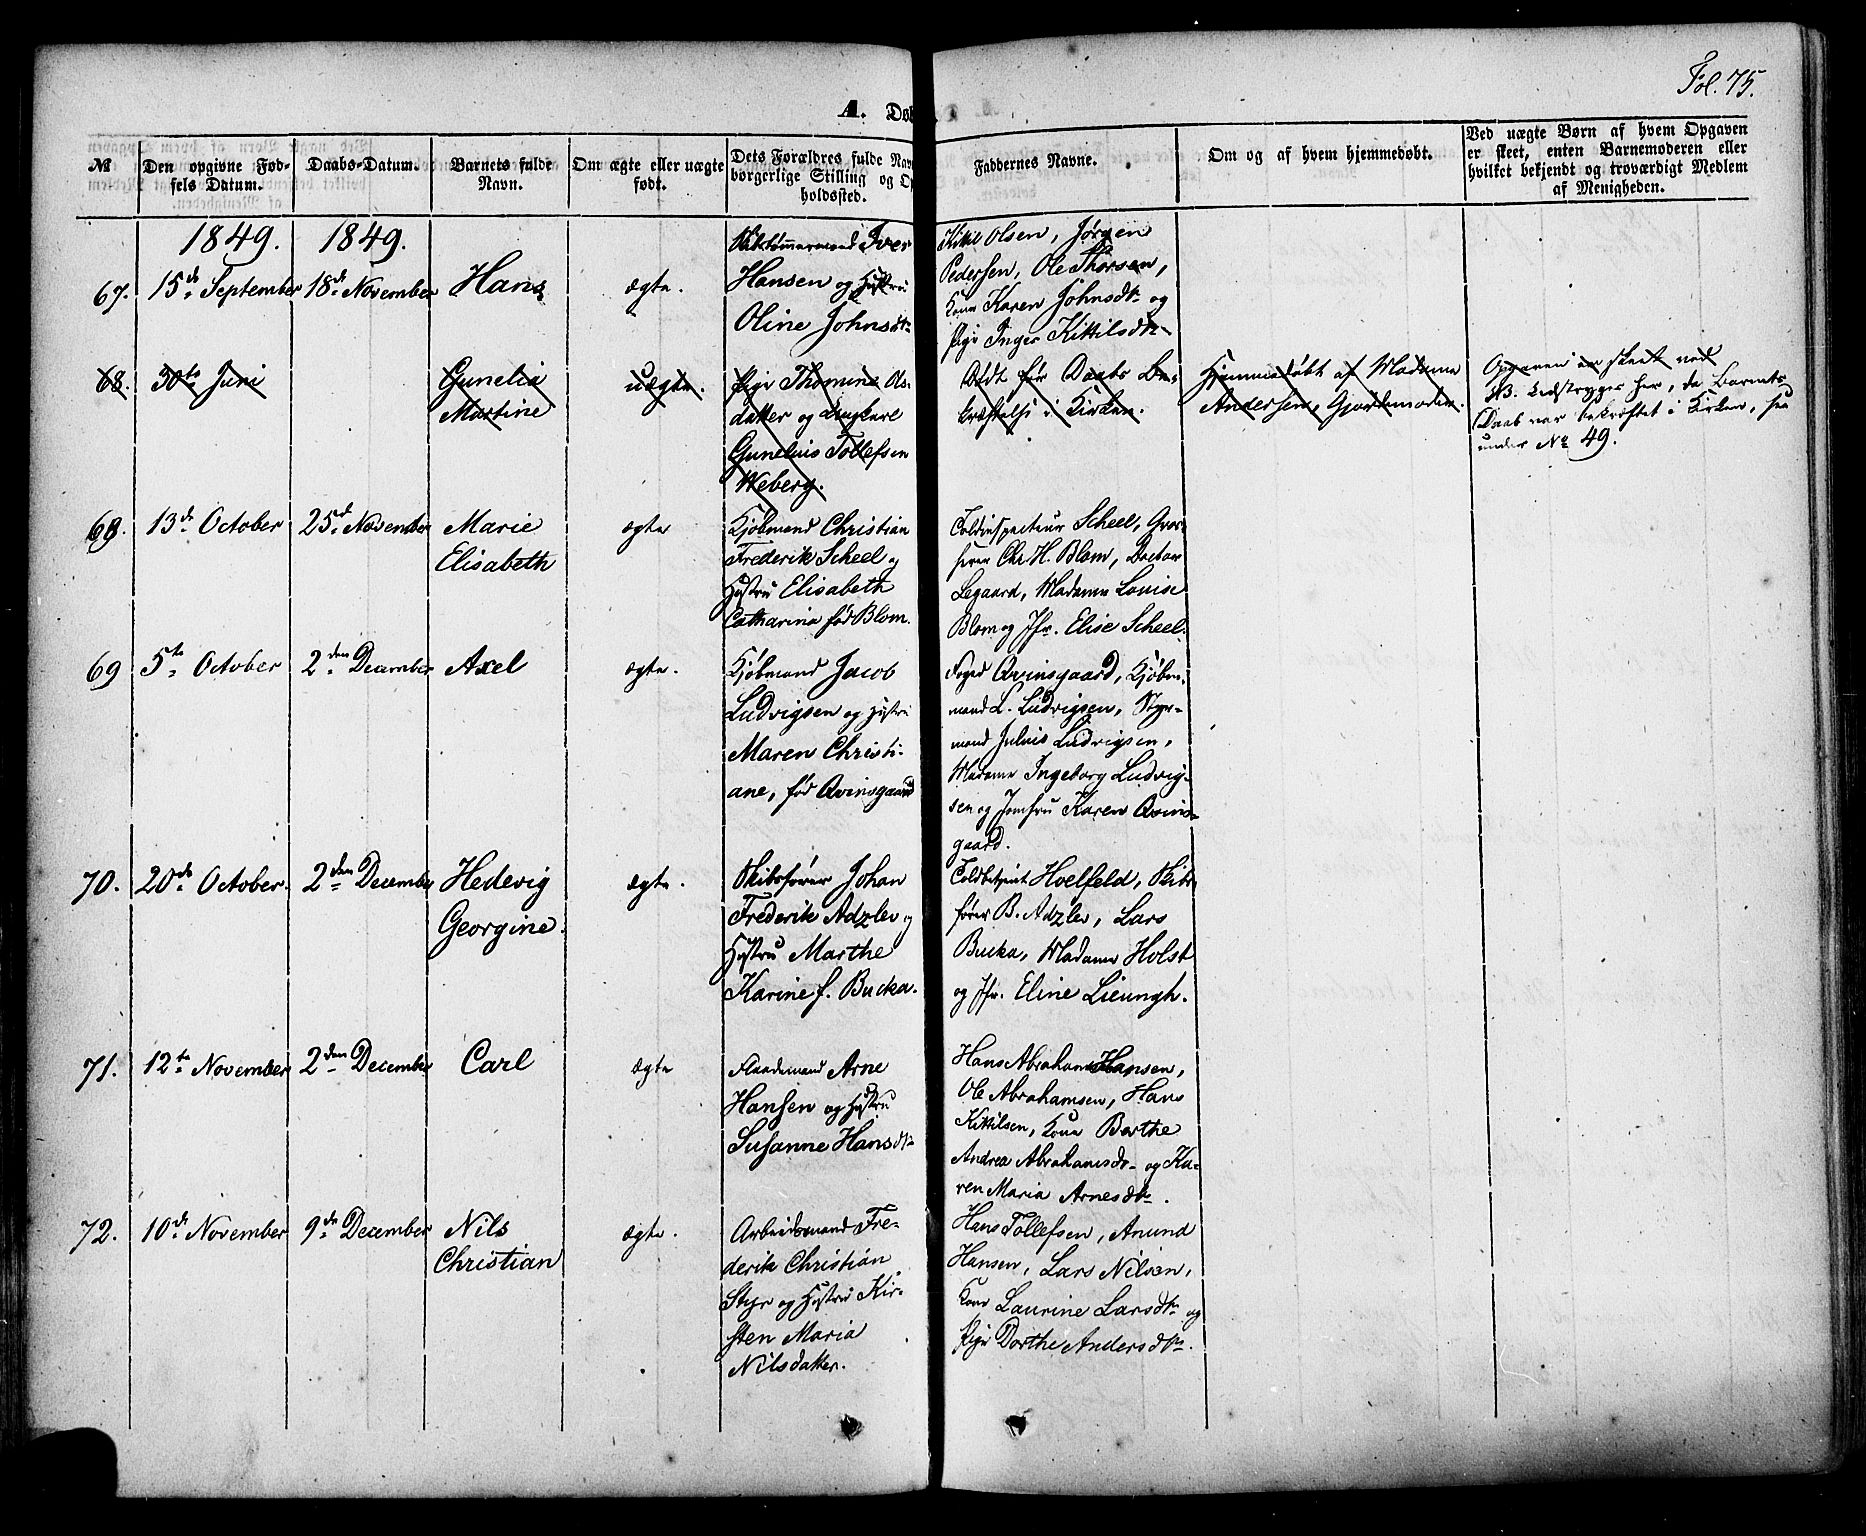 Fol. 75.
A. Døb
№
Den opgivne Fød-
sels Datum.
Daabs-Datum.
Barnets fulde
Navn.
Om ægte eller uægte
født.
Dets Forældres fulde Nav
borgerlige Stilling og Op
holdssted.
Faddernes Navne.
Om og af hvem hjemmedøbt.
Ved uægte Børn af hvem Opgaven
er skeet, enten Barnemoderen eller
hvilket bekjendt og troværdigt Medlem
af Menigheden.
1849.
1849.
67.
15de September
18de November
Hans
ægte.
Skibstømmermand Iver
Hansen og Hustru
Oline Johnsdtr
Kittil Olsen, Jørgen
Pedersen, Ole Thorsen,
Kone Karen Johnsdtr og
Pige Inger Kittilsdtr
68.
30te Juni
Gunelia
Martine
uægte.
Pige Thomine Ols-
datter og Ungkarl
Gunelius Tollefsen
Weberg.
Død før Daabs Be-
kræftelse i Kirken.
Hjemmedøbt af Madame
Andersen, Gjordemoder.
Opgaven er skeet ved
NB. Udstryges her, da Barnets
Daab var bekræftet i Kirken, see
under No 49.
68.
13de October
25de November
Marie
Elisabeth
ægte
Kjøbmand Christian
Frederik Scheel og
Hustru Elisabeth
Catharina født Blom.
Toldinspecteur Scheel, Gros-
serer Chr. H. Blom, Doctor
Legaard, Madame Louise
Blom og Jfr. Elise Scheel.
69
5te October
2den December
Axel
ægte.
Kjøbmand Jacob
Ludvigsen og Hustru
Maren Christi-
ane, født Qvinsgaard
Foged Qvinsgaard, Kjøb-
mand L. Ludvigsen, Styr-
mand Julius Ludvigsen,
Madame Ingeborg Ludvig-
sen og Jomfru Karen Qvins-
gaard.
70.
20de October.
2den December
Hedevig
Georgine.
ægte.
Skibsfører Johan
Frederik Adzlev og
Hustru Marthe
Karine f. Bucka.
Toldbetjent Hoelfeld, Skibs-
fører B. Adzlev, Lars
Bucka, Madame Holst
og Jfr. Eline Lieungh.
71.
12te November
2den December
Carl
ægte
Flaademand Arne
Hansen og Hustru
Susanne Hansdtr
Hans Abraham Hansen,
Ole Abrahamsen, Hans
Kittilsen, Kone Berthe
Andrea Abrahamsdr og Ka-
ren Maria Arnesdtr.
72.
10de November
9de December
Nils
Christian
ægte.
Arbeidsmand Fre-
derik Christian
Styr og Hustru Kir-
sten Maria
Nilsdatter.
Hans Tollefsen, Anund
Hansen, Lars Nilsen,
Kone Laurine Larsdtr og
Pige Dorthe Andersdtr.